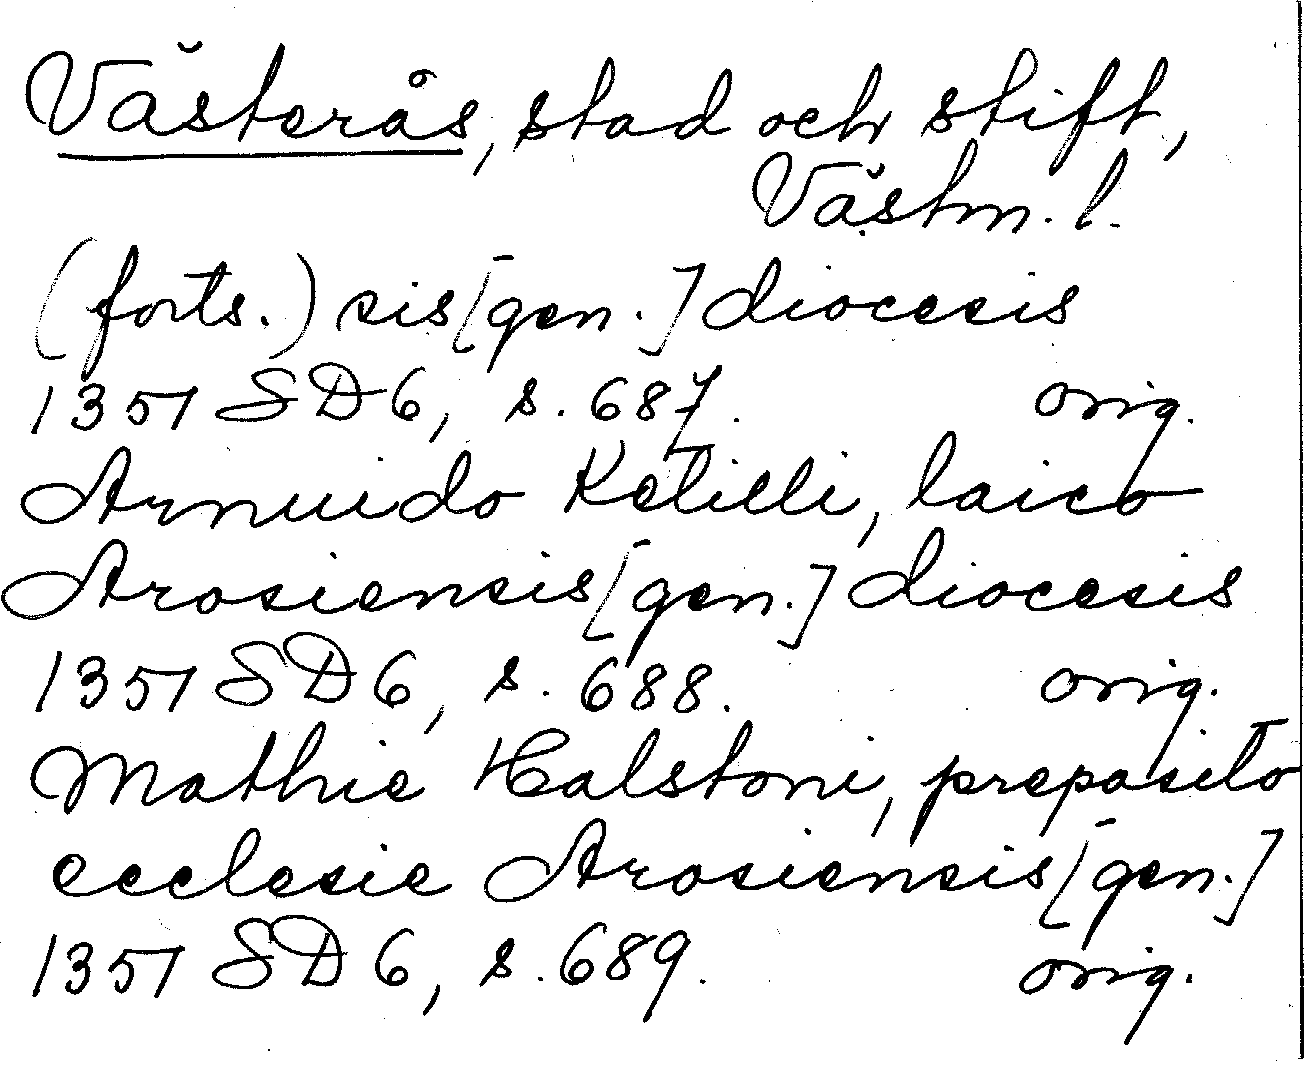 Västerås, stad och stift,
Västm. l.
(forts.) sis [gen.] diocesis
1351 SD 6, s. 687. orig.
Arnuido Ketilli, laico
Arosiensis [gen.] diocesis
1351 SD 6, s. 688. orig.
Mathie Halstoni, preposito
ecclesie Arosiensis [gen.]
1351 SD 6, s. 689. orig.